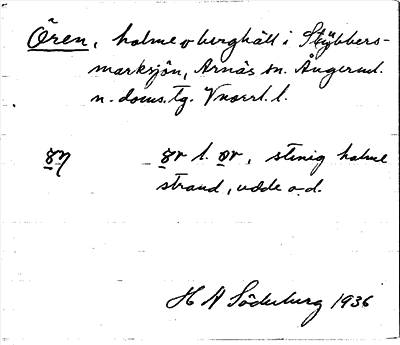 Ören, holme o berghäll i Stybbers-
marksjön, Arnäs sn. Ångerml.
n. doms.tg. Vnorrl. l.
ör l. ør, stenig holme
strand, udde o.d.
H A Söderberg 1936